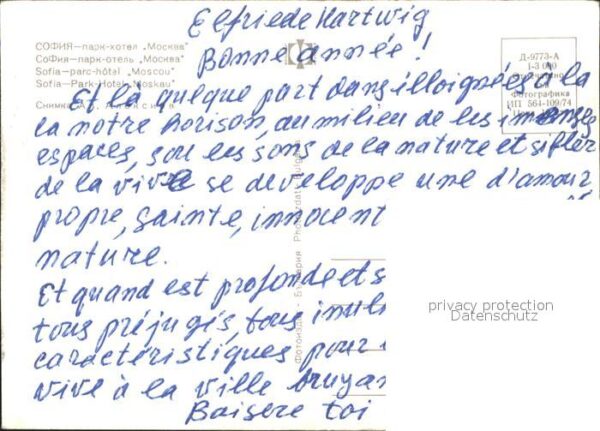 Elfriede Hartwig
Bonne année !
СОФИЯ—парк-хотел „Москва"
СоФия—парк-отель „Москва"
Sofia—parc-hôtel „Moscou"
Sofia—Park-Hotel „Moskau"
Снимка
Д-9773-А
1-3 000
Фотографика
ИП 564-109/74
Et là quelque part dans illoignées, à la
la notre horison, au milieu de les imenses
espaces, sou les sons de la nature et sifler
de la vive se developpe une d'amour,
propre, sainte, innocent
nature.
Et quand est profonde et s
tous préjugés, tous inuli
caractéristiques pour
vive à la ville bruyan
Baisere toi
България
privacy protection
Datenschutz